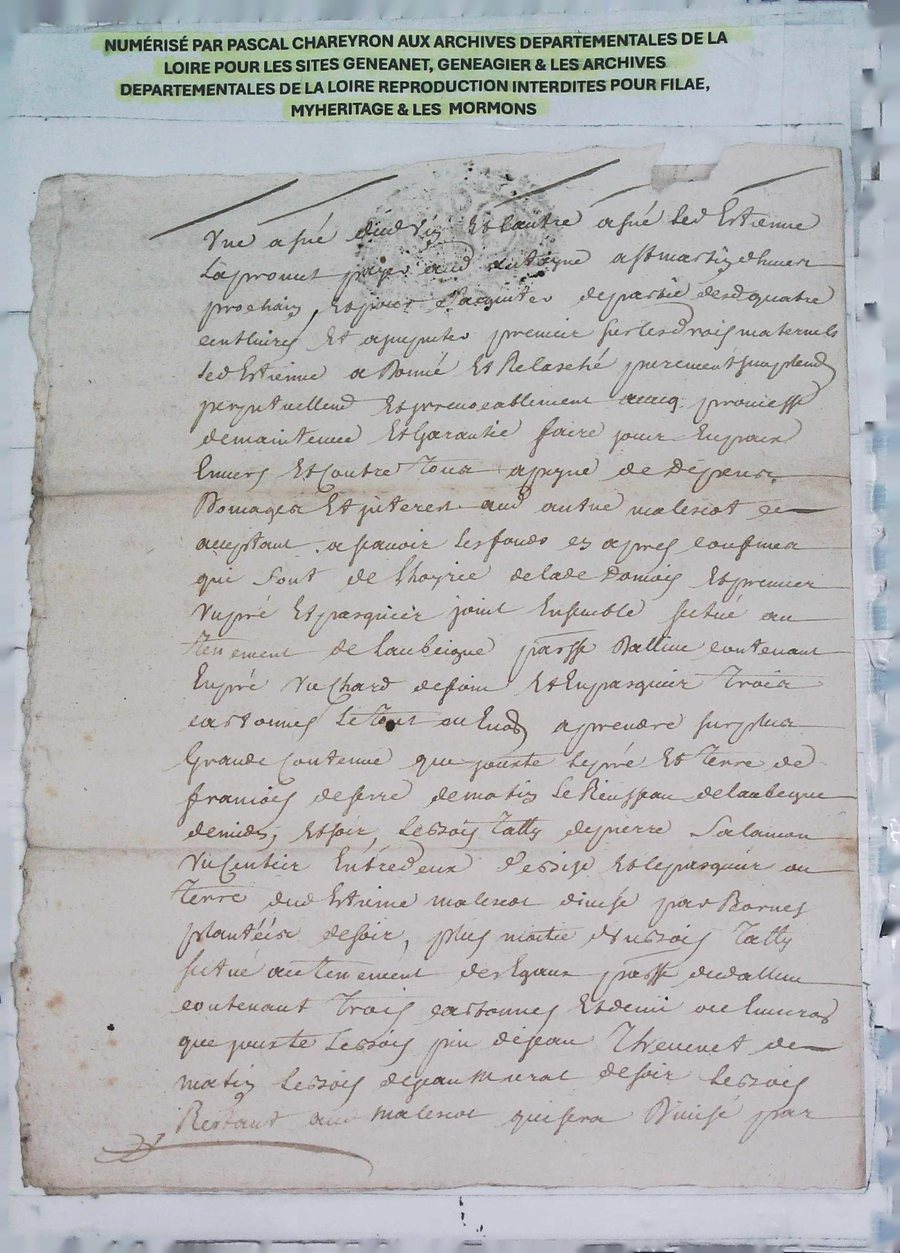 NUMÉRISÉ PAR PASCAL CHAREYRON AUX ARCHIVES DEPARTEMENTALES DE LA
LOIRE POUR LES SITES GENEANET, GENEAGIER & LES ARCHIVES
DEPARTEMENTALES DE LA LOIRE REPRODUCTION INTERDITES POUR FILAE,
MYHERITAGE & LES MORMONS
Vne a sué dud et lautre a sué led Estienne
La promit payer aud Antoyne a st martin dhiuer
prochain, et pour sacquiter de partie desd quatre
cent liures et premier sur lesd drois maternels
led Estienne a Donné et Relasché purement simplemt
perpetuellemt et irreuocablement aueq promesse
de maintenue et Garantie faire jouir En paix
Enuers et Contre Tous a peyne de Dépens
Domages et jnterest aud antne malescot en
acceptant a scauoir les fonds cy apres confinea
qui sont de lhoyrie de lade Et premier
Vn pré et pasquier joint Ensemble scitué au
tenement de Laubeigue parsse contenant
En pré Vn Chard de foin et En pasquier Trois
cartonnes le Tout ou Enuon a prendre sur plus
Grande Contenue que jouste le pré et Terre de
francois deserre de matin le Ruisseau de laubeigue
de midy, et soir, les bois Tally de pierre Salamon
Vn sentier Entredeux de bise et le pasquier ou
Terre dud Estienne malescot diuisé par Bornes
plantées de soir, plus moitié dun bois Tally
scitué au tenement des Egaux parsse dud
contenant Trois cartonnes et demi ou Enuiron
que jouste les bois pin de jean Theuenet de
matin les bois de jean Murat de soir les bois
Restant aud malescot qui sera Diuisé par